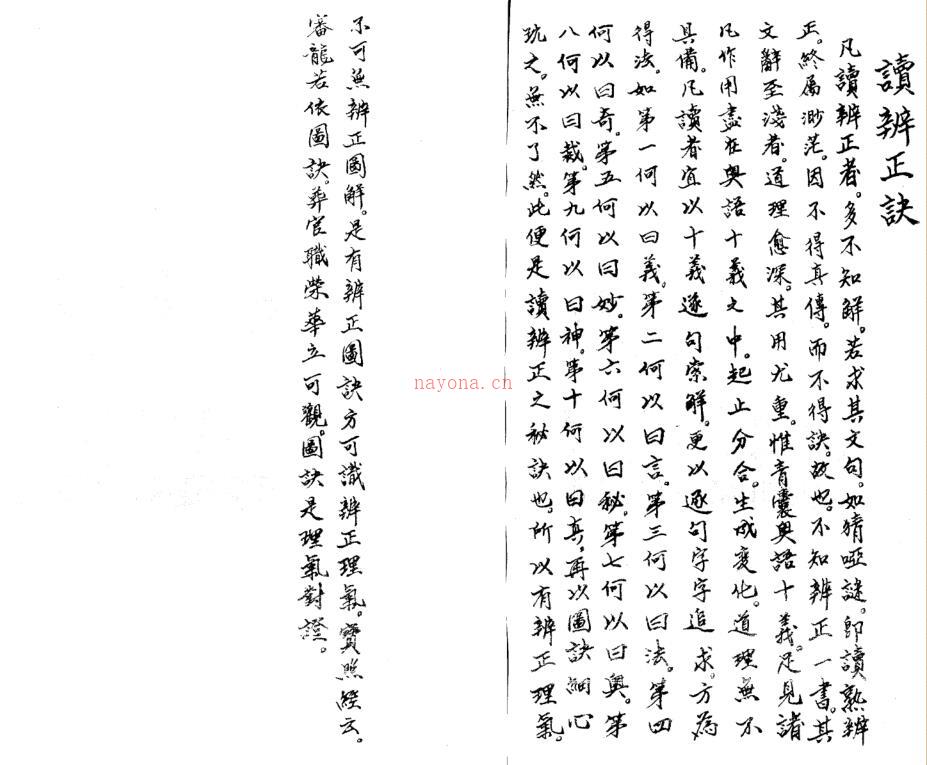 讀辨正訣
凡讀辨正者。多不知解。若求其文句。如猜啞謎。即讀熟辨
正。終屬渺茫。因不得真傳。而不得訣。故也。不知辨正一書。其
文辭至淺者。道理愈深。其用尤重。惟青囊奧語十義。足見諸
凡作用盡在奧語十義之中。起止分合。生成變化。道理無不
具備。凡讀者宜以十義逐句索解。更以逐句字字追求。方為
得法。如第一何以曰義。第二何以曰言。第三何以曰法。第四
何以曰奇。第五何以曰妙。第六何以曰秘。第七何以曰奧。第
八何以曰裁。第九何以曰神。第十何以曰真，再以圖訣細心
玩之。無不了然。此便是讀辨正之秘訣也。所以有辨正理氣。
不可無辨正圖解。是有辨正圖訣方可識辨正理氣。寶照經云。
審龍若依圖訣。葬官職榮華立可觀。圖訣是理氣對證。
nayona.cn